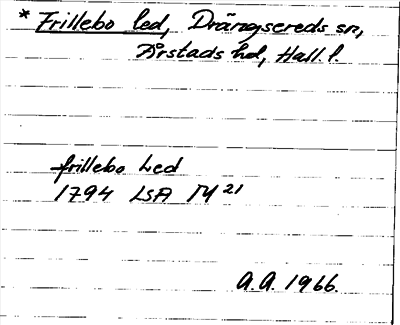 * Frillebo led, Drängsereds sn,
Årstads hd, Hall. l.
frillebo Led
1794 LSA M 21
A.A. 1966.